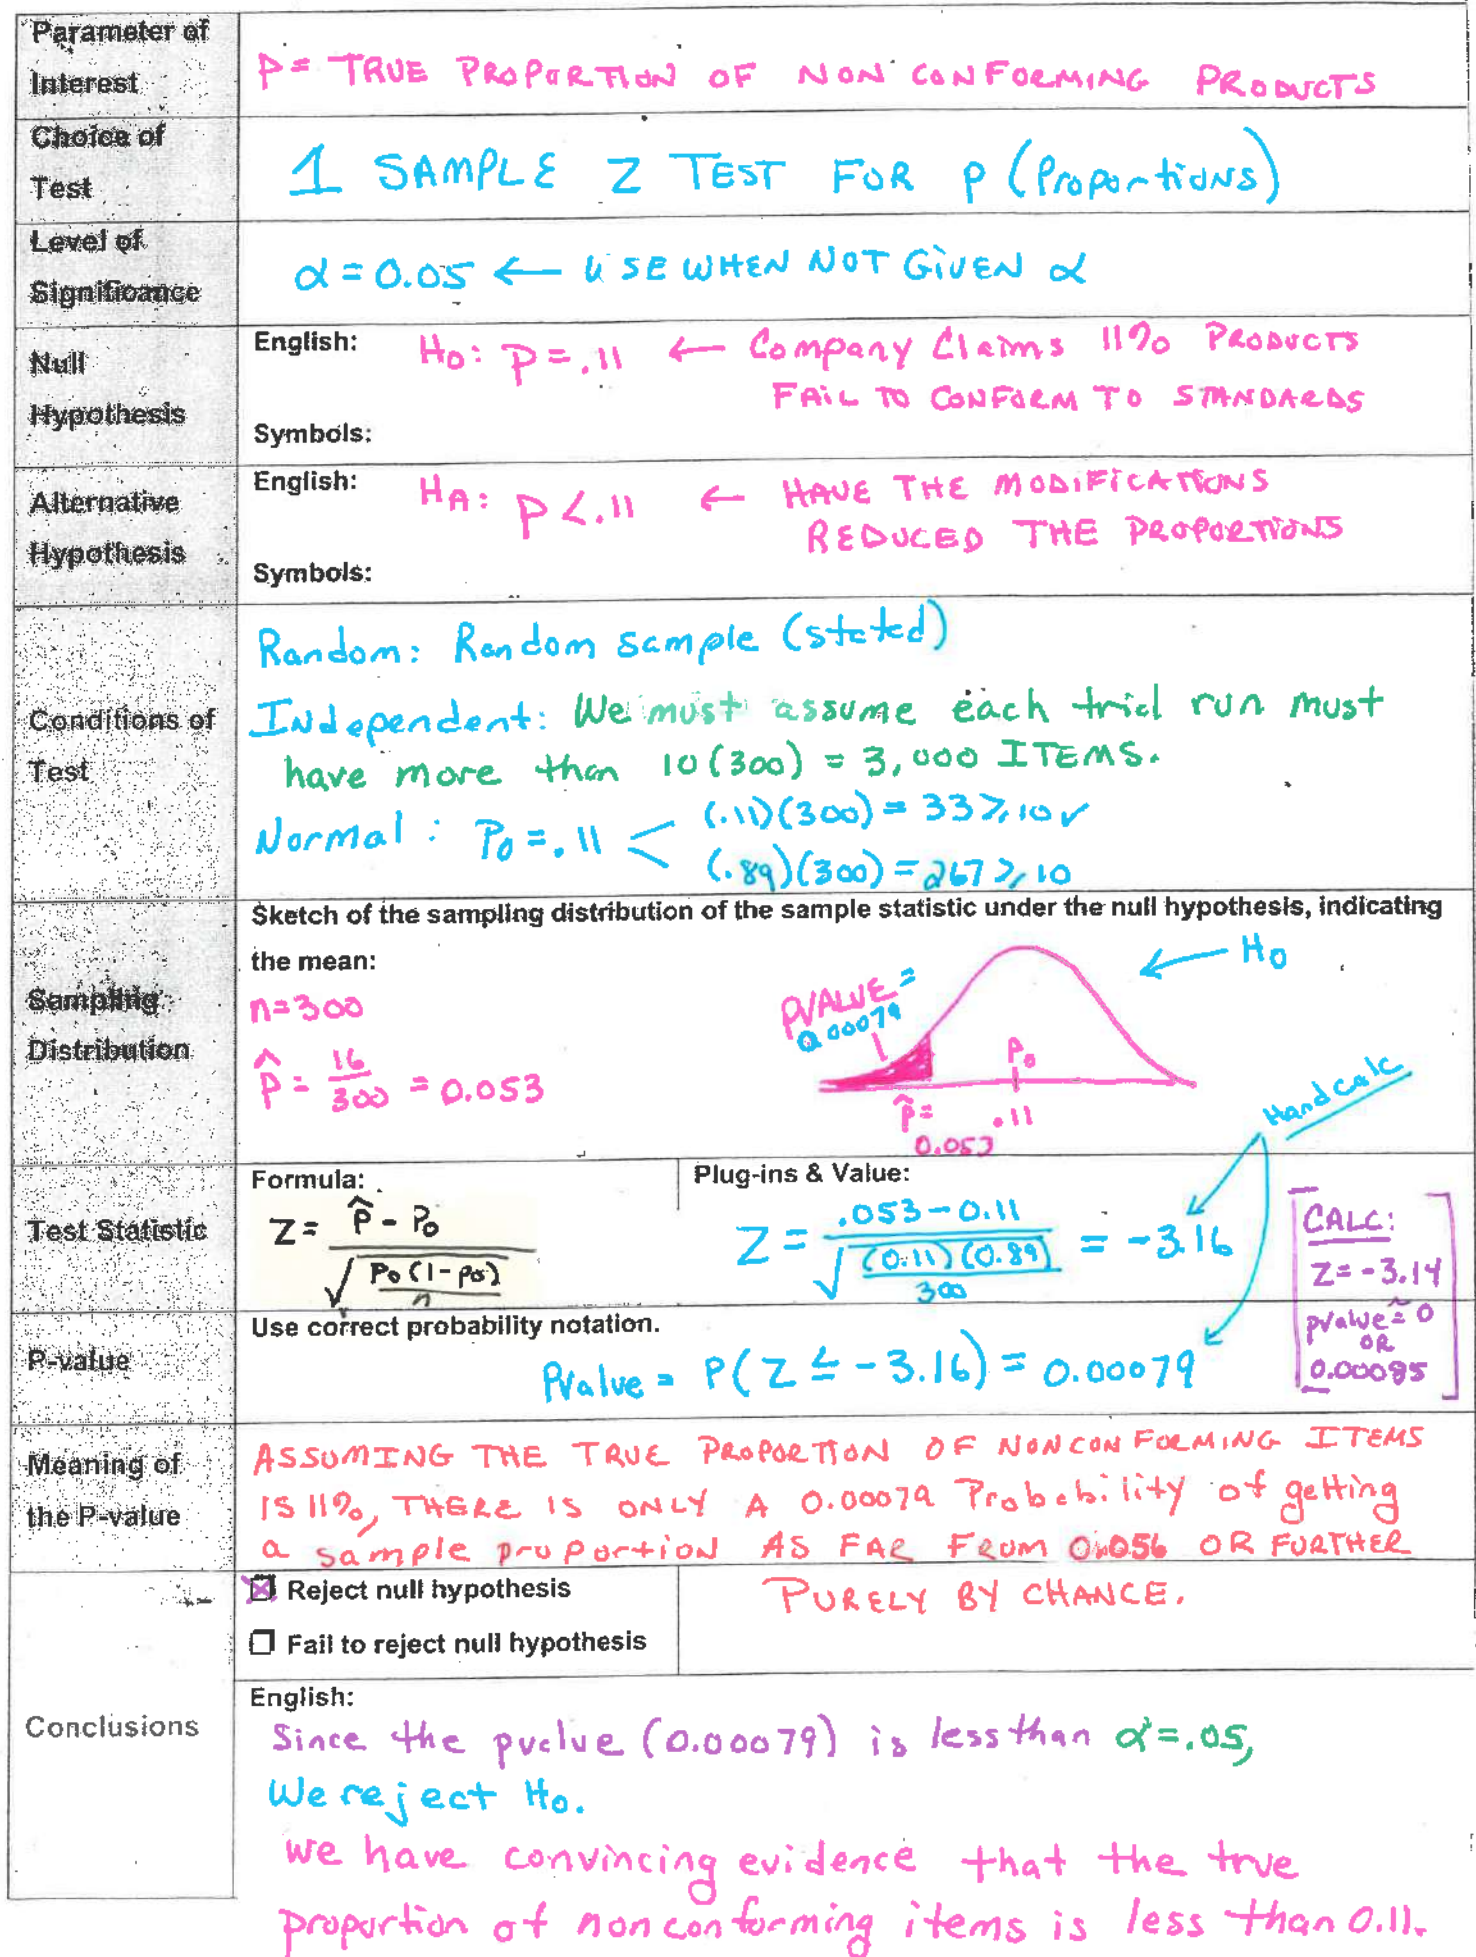 Parameter of
Interest
P = TRUE PROPORTION OF NON CONFORMING PRODUCTS
Choice of
Test
1 SAMPLE Z TEST FOR P (Proportions)
Level of
Significance
α = 0.05 ← USE WHEN NOT GIVEN α
Null
Hypothesis
English: H₀: P = .11 ← Company Claims 11% PRODUCTS
FAIL TO CONFORM TO STANDARDS
Symbols:
Alternative
Hypothesis
English: H_A: P < .11 ← HAVE THE MODIFICATIONS
REDUCED THE PROPORTIONS
Symbols:
Conditions of
Test
Random: Random sample (stated)
Independent: We must assume each trial run must
have more than 10(300) = 3,000 ITEMS.
Normal: P₀ = .11 < (.11)(300) = 33 ≥ 10 ✓
(.89)(300) = 267 ≥ 10
Sampling
Distribution
Sketch of the sampling distribution of the sample statistic under the null hypothesis, indicating
the mean:
n=300
p̂ = 16/300 = 0.053
PVALUE =
0.00079
← H₀
P₀
p̂ =
0.053
.11
Hand calc
Test Statistic
Formula:
Z = (p̂ - P₀) / √(P₀(1-P₀)/n)
Plug-ins & Value:
Z = (.053 - 0.11) / √((0.11)(0.89)/300) = -3.16
CALC:
Z = -3.14
pvalue ≈ 0
OR
0.00085
P-value
Use correct probability notation.
Pvalue = P(Z ≤ -3.16) = 0.00079
Meaning of
the P-value
ASSUMING THE TRUE PROPORTION OF NONCONFORMING ITEMS
IS 11%, THERE IS ONLY A 0.00079 Probability of getting
a sample proportion AS FAR FROM 0.056 OR FURTHER
PURELY BY CHANCE.
Conclusions
☒ Reject null hypothesis
☐ Fail to reject null hypothesis
English:
Since the pvalue (0.00079) is less than α = .05,
We reject H₀.
We have convincing evidence that the true
proportion of non conforming items is less than 0.11.